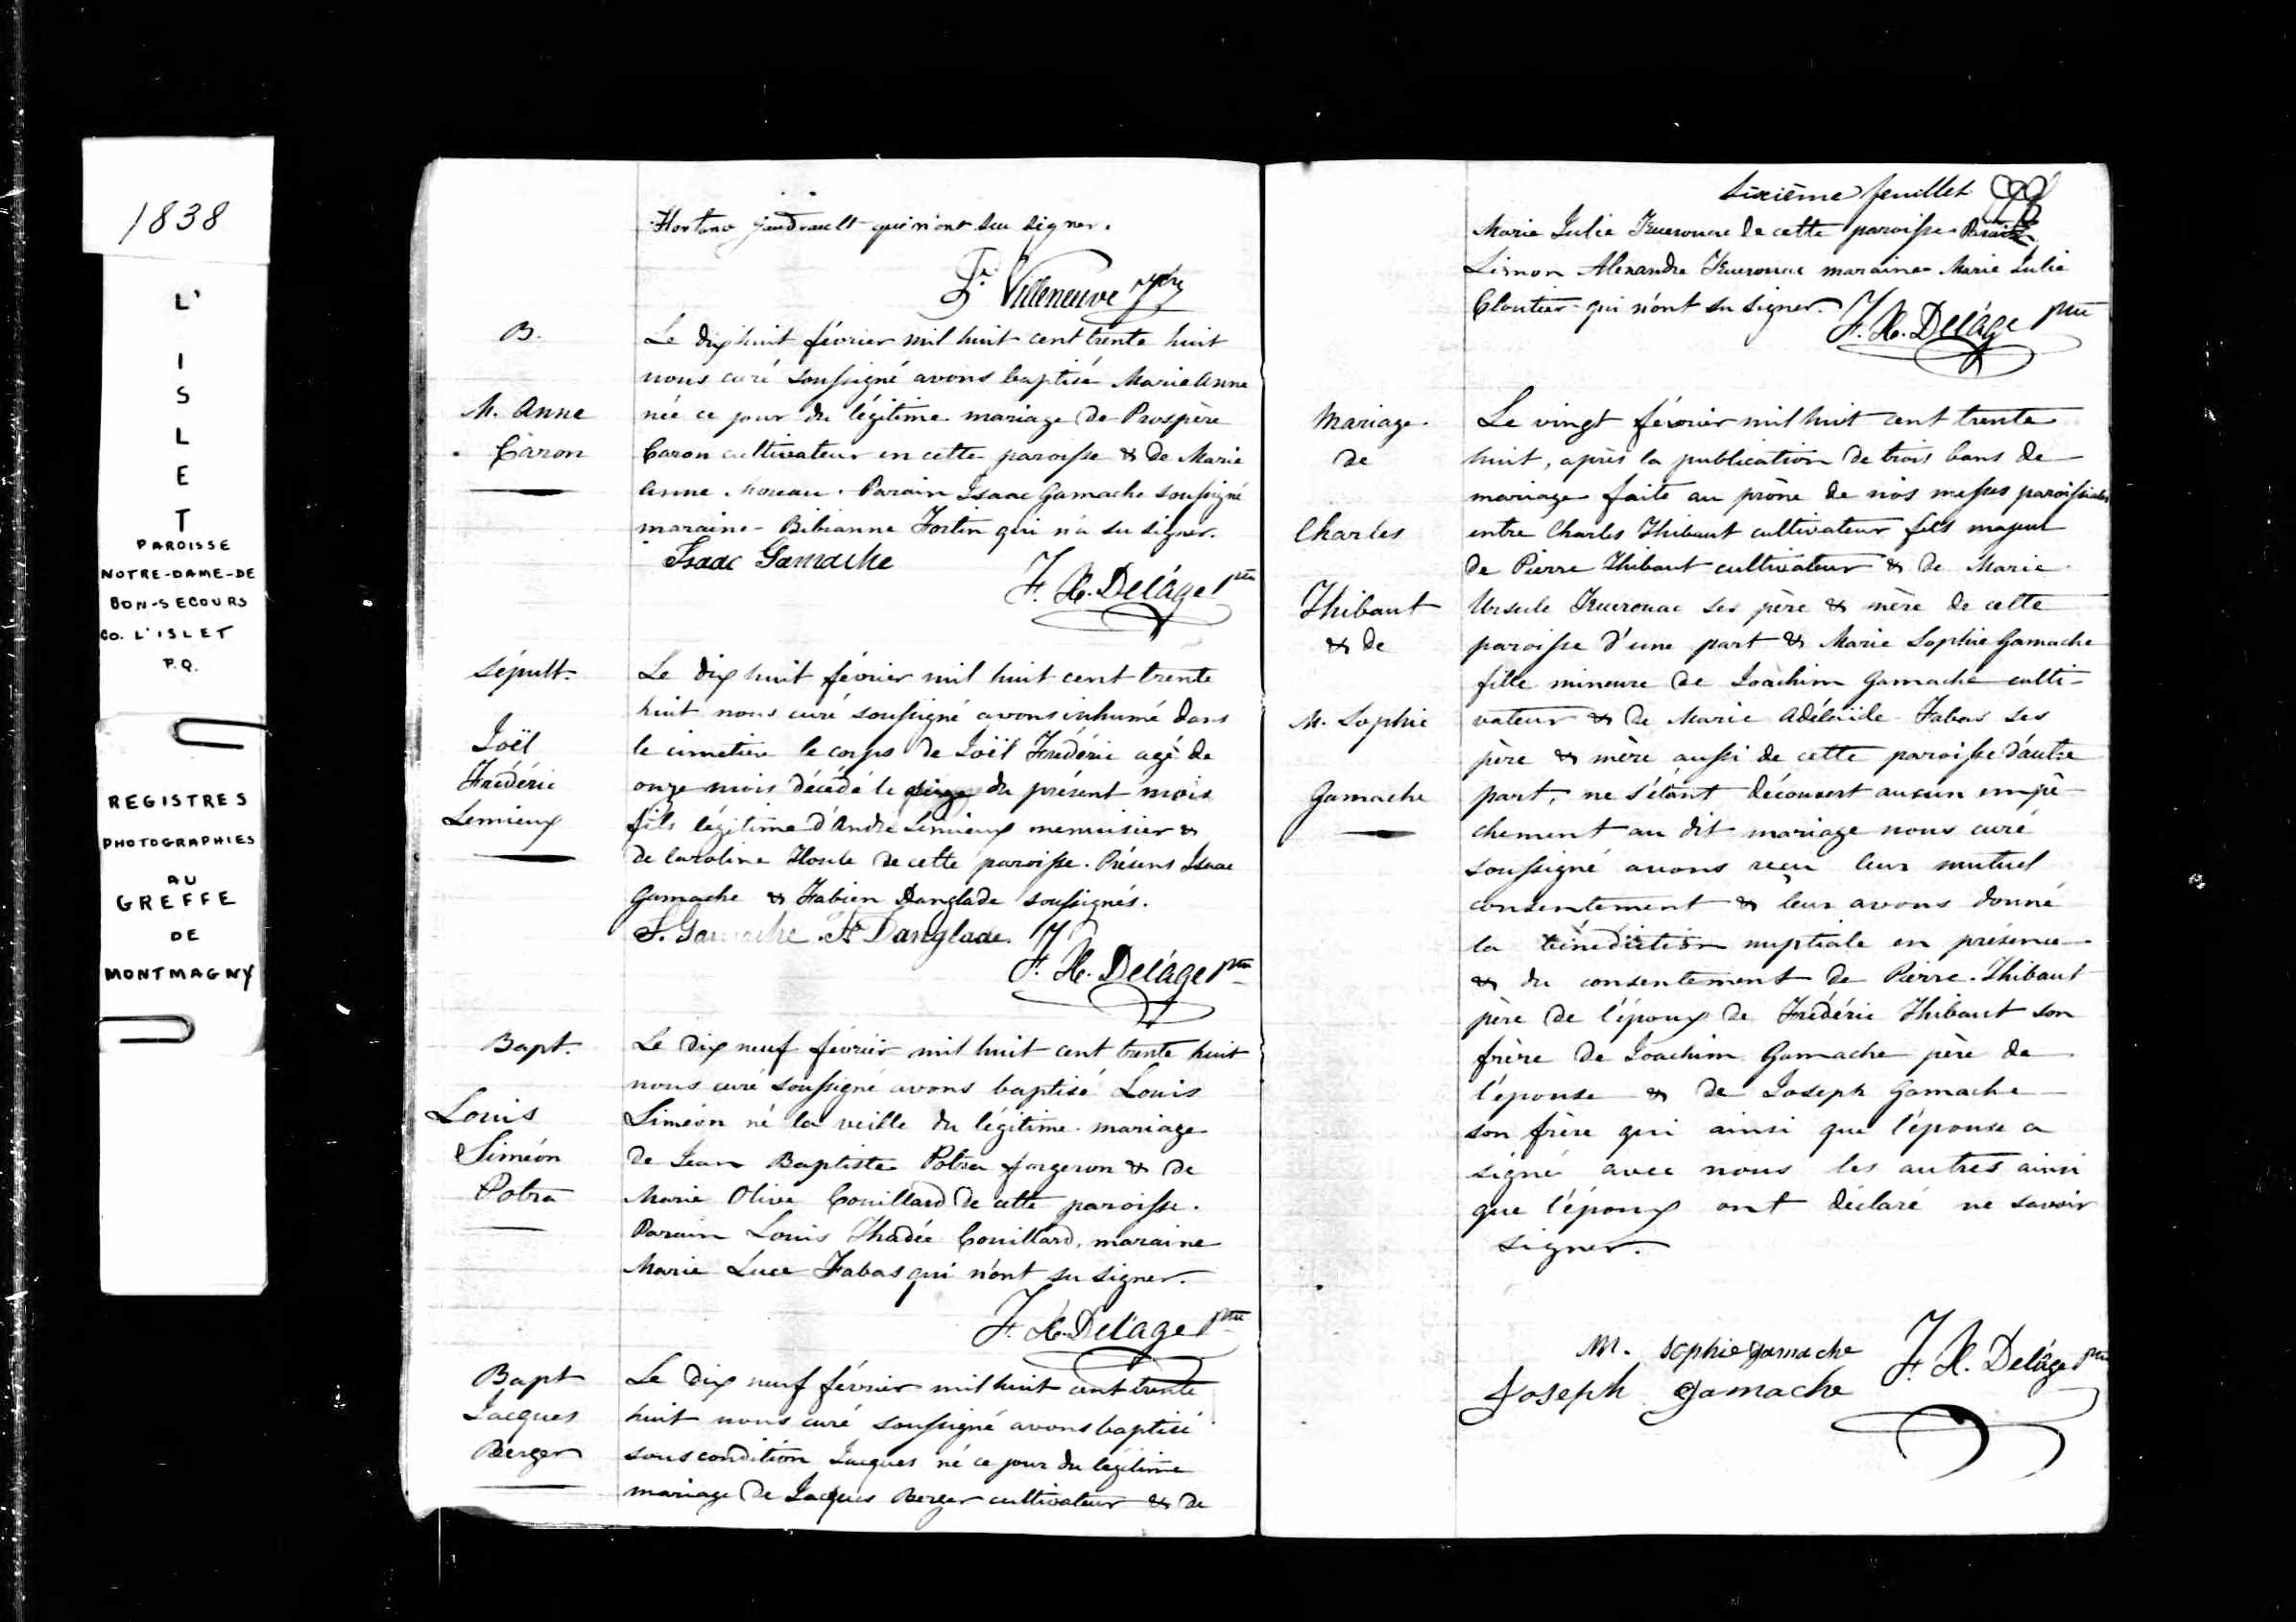 1838
L'
I
S
L
E
T
PAROISSE
NOTRE-DAME-DE
BON-SECOURS
CO. L'ISLET
P.Q.
REGISTRES
PHOTOGRAPHIES
AU
GREFFE
DE
MONTMAGNY
qui n'ont su signer.
Villeneuve ptre
B.
M. Anne
Caron
Le dix huit février mil huit cent trente huit
nous curé soussigné avons baptisé Marie Anne
née ce jour du légitime mariage de Prospère
Caron cultivateur en cette paroisse & de Marie
Anne Moreau. Parain Isaac Gamache soussigné
maraine Bibianne Fortin qui n'a su signer.
Isaac Gamache
F. X. Delâge ptre
Sépult.
Joël
Frédéric
Lemieux
Le dix huit février mil huit cent trente
huit nous curé soussigné avons inhumé dans
le cimetière le corps de Joël Frédéric agé de
onze mois décédé le seize du présent mois
fils légitime d'André Lemieux menuisier &
de Caroline Houle de cette paroisse. Présens Isaac
Gamache & Fabien Danglade soussignés.
I. Gamache F. Danglade
F. X. Delâge ptre
Bapt.
Louis
Siméon
Potra
Le dix neuf février mil huit cent trente huit
nous curé soussigné avons baptisé Louis
Siméon né la veille du légitime mariage
de Jean Baptiste Potra forgeron & de
Marie Olive Couillard de cette paroisse.
Parain Louis Thadée Couillard, maraine
Marie Luce Fabas qui n'ont su signer.
F. X. Delâge ptre
Bapt
Jacques
Berger
Le dix neuf février mil huit cent trente
huit nous curé soussigné avons baptisé
sous condition Jacques né ce jour du légitime
mariage de Jacques Berger cultivateur & de
Sixième feuillet
Marie Julie Kuerouac de cette paroisse Parain
Simon Alexandre Kuerouac maraine Marie Julie
Cloutier qui n'ont su signer.
F. X. Delâge ptre
Mariage
de
Charles
Thibaut
& de
M. Sophie
Gamache
Le vingt février mil huit cent trente
huit, après la publication de trois bans de
mariage faite au prône de nos messes paroissiales
entre Charles Thibaut cultivateur fils majeur
de Pierre Thibaut cultivateur & de Marie
Ursule Kuerouac ses père & mère de cette
paroisse d'une part & Marie Sophie Gamache
fille mineure de Joachim Gamache culti-
vateur & de Marie Adélaïde Fabas ses
père & mère aussi de cette paroisse d'autre
part, ne s'étant découvert aucun empê-
chement au dit mariage nous curé
soussigné avons reçu leur mutuel
consentement & leur avons donné
la bénédiction nuptiale en présence
& du consentement de Pierre Thibaut
père de l'époux de Frédéric Thibaut son
frère de Joachim Gamache père de
l'épouse & de Joseph Gamache
son frère qui ainsi que l'épouse a
signé avec nous les autres ainsi
que l'époux ont déclaré ne savoir
signer.
M. Sophie Gamache
Joseph Gamache
F. X. Delâge ptre